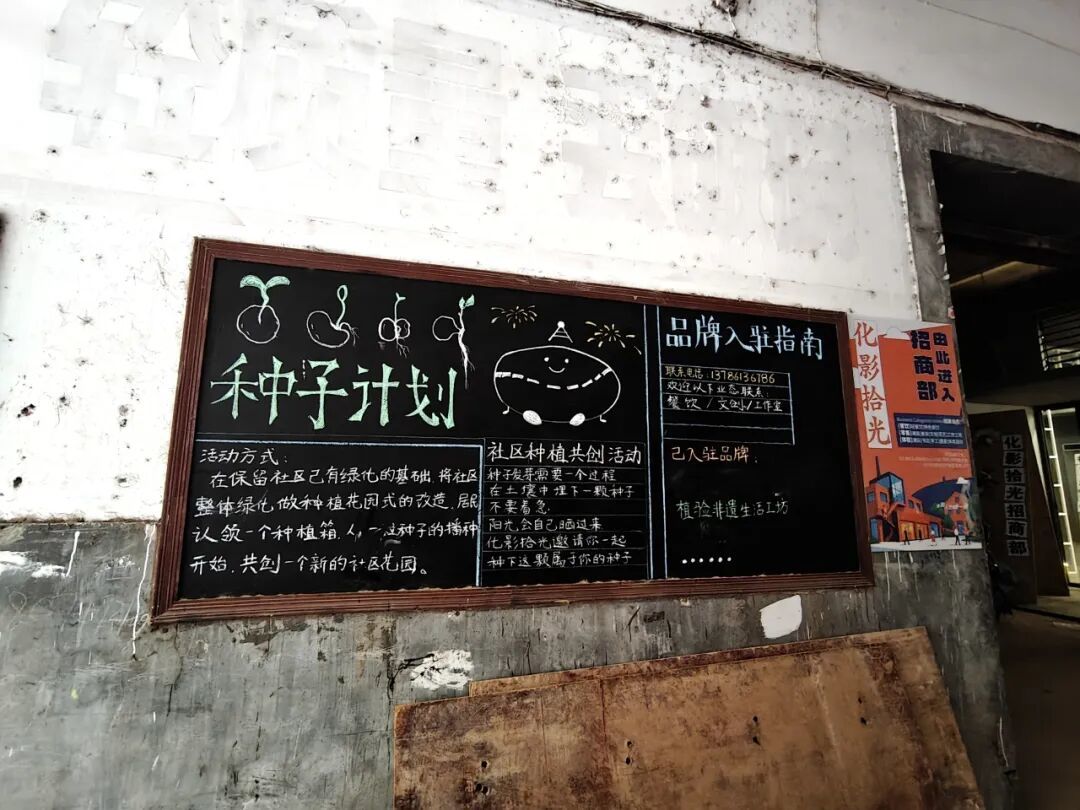 种子计划
活动方式：
在保留社区已有绿化的基础，将社区
整体绿化做种植花园式的改造，居民
认领一个种植箱，从一颗种子的播种
开始，共创一个新的社区花园。
社区种植共创活动
种子发芽需要一个过程
在土壤中埋下一颗种子
不要着急
阳光会自己晒过来
化影拾光邀请你一起
种下这颗属于你的种子
品牌入驻指南
联系电话：13786136786
欢迎以下业态联系：
餐饮/文创/工作室
已入驻品牌：
植验非遗生活工坊
......
化影拾光
由此进入
招商部
化影拾光招商部